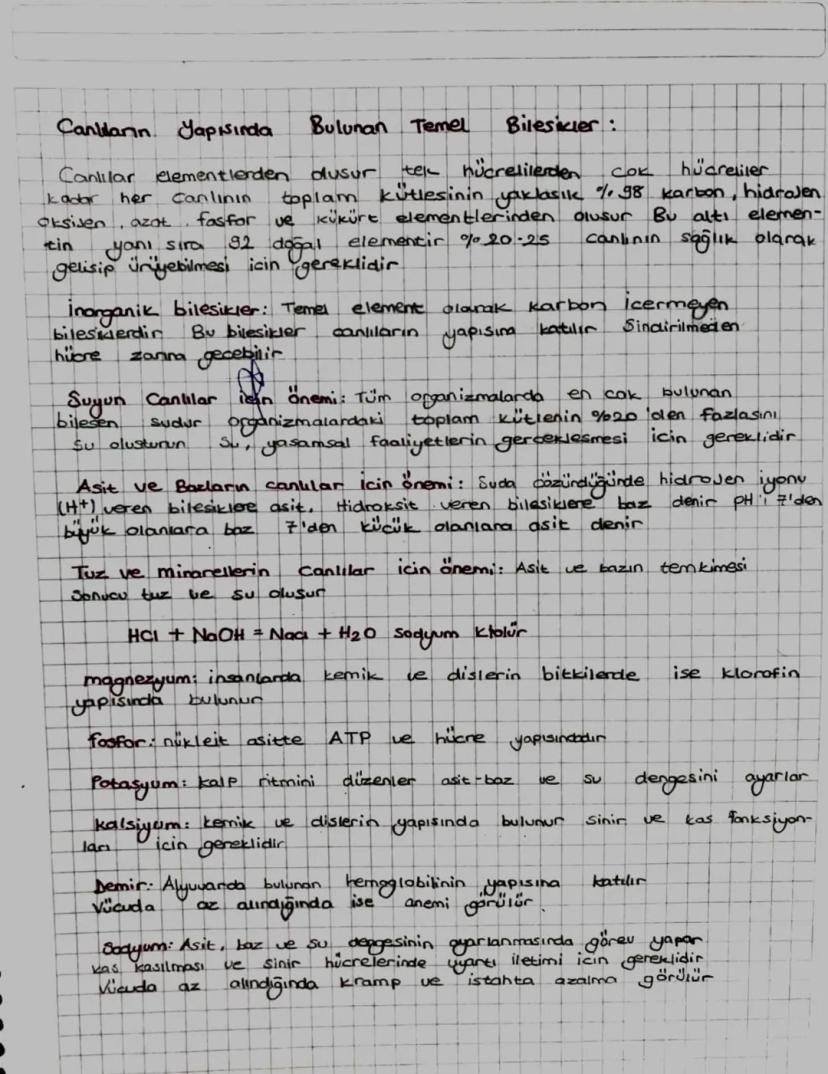 Canlıların Yapısında Bulunan Temel Bilesikler :
Canlılar elementlerden olusur tek hücrelilerden cok hücreliler
kadar her canlının toplam kütlesinin yaklasık %98 karbon, hidrojen
oksijen, azot, fosfor ve kükürt elementlerinden olusur Bu altı elemen-
tin yanı sıra 92 doğal elementir %20-25 canlının sağlık olarak
gelisip üriyebilmesi icin gereklidir
inorganik bilesikler: Temel element olarak karbon icermeyen
bilesiklerdir Bu bilesikler canlıların yapısına katılır Sindirilmeden
hücre zarına gecebilir
Suyun Canlılar icin önemi: Tüm organizmalarda en cok bulunan
bilesen sudur organizmalardaki toplam kütlenin %20'den fazlasını
su olusturun Su, yasamsal faaliyetlerin gerceklesmesi icin gereklidir
Asit ve Bazların canlılar icin önemi: Suda cözündüğünde hidrojen iyonu
(H+) veren bilesiklere asit, Hidroksit veren bilesiklere baz denir pH'ı 7'den
büyük olanlara baz 7'den kücük olanlara asit denir
Tuz ve minarellerin Canlılar icin önemi: Asit ve bazın temkimesi
sonucu tuz ve su olusur
HCl + NaOH = Nacl + H2O Sodyum Klolür
magnezyum: insanlarda kemik ve dislerin bitkilerde ise klorofin
yapisında bulunur
fosfor: nükleit asitte ATP ve hücre yapısındadır
Potasyum: kalp ritmini düzenler asit-baz ve su dengesini ayarlar
kalsiyum: kemik ve dislerin yapısında bulunur sinir ve kas fonksiyon-
ları icin gereklidir
Demir: Alyuvarda bulunan hemoglobilinin yapısına katılır
Vücuda az alındığında ise anemi görülür
Sodyum: Asit, baz ve su dengesinin ayarlanmasında görev yapar
kas kasılması ve sinir hücrelerinde uyartı iletimi icin gereklidir
Vücuda az alındığında kramp ve istahta azalma görülür